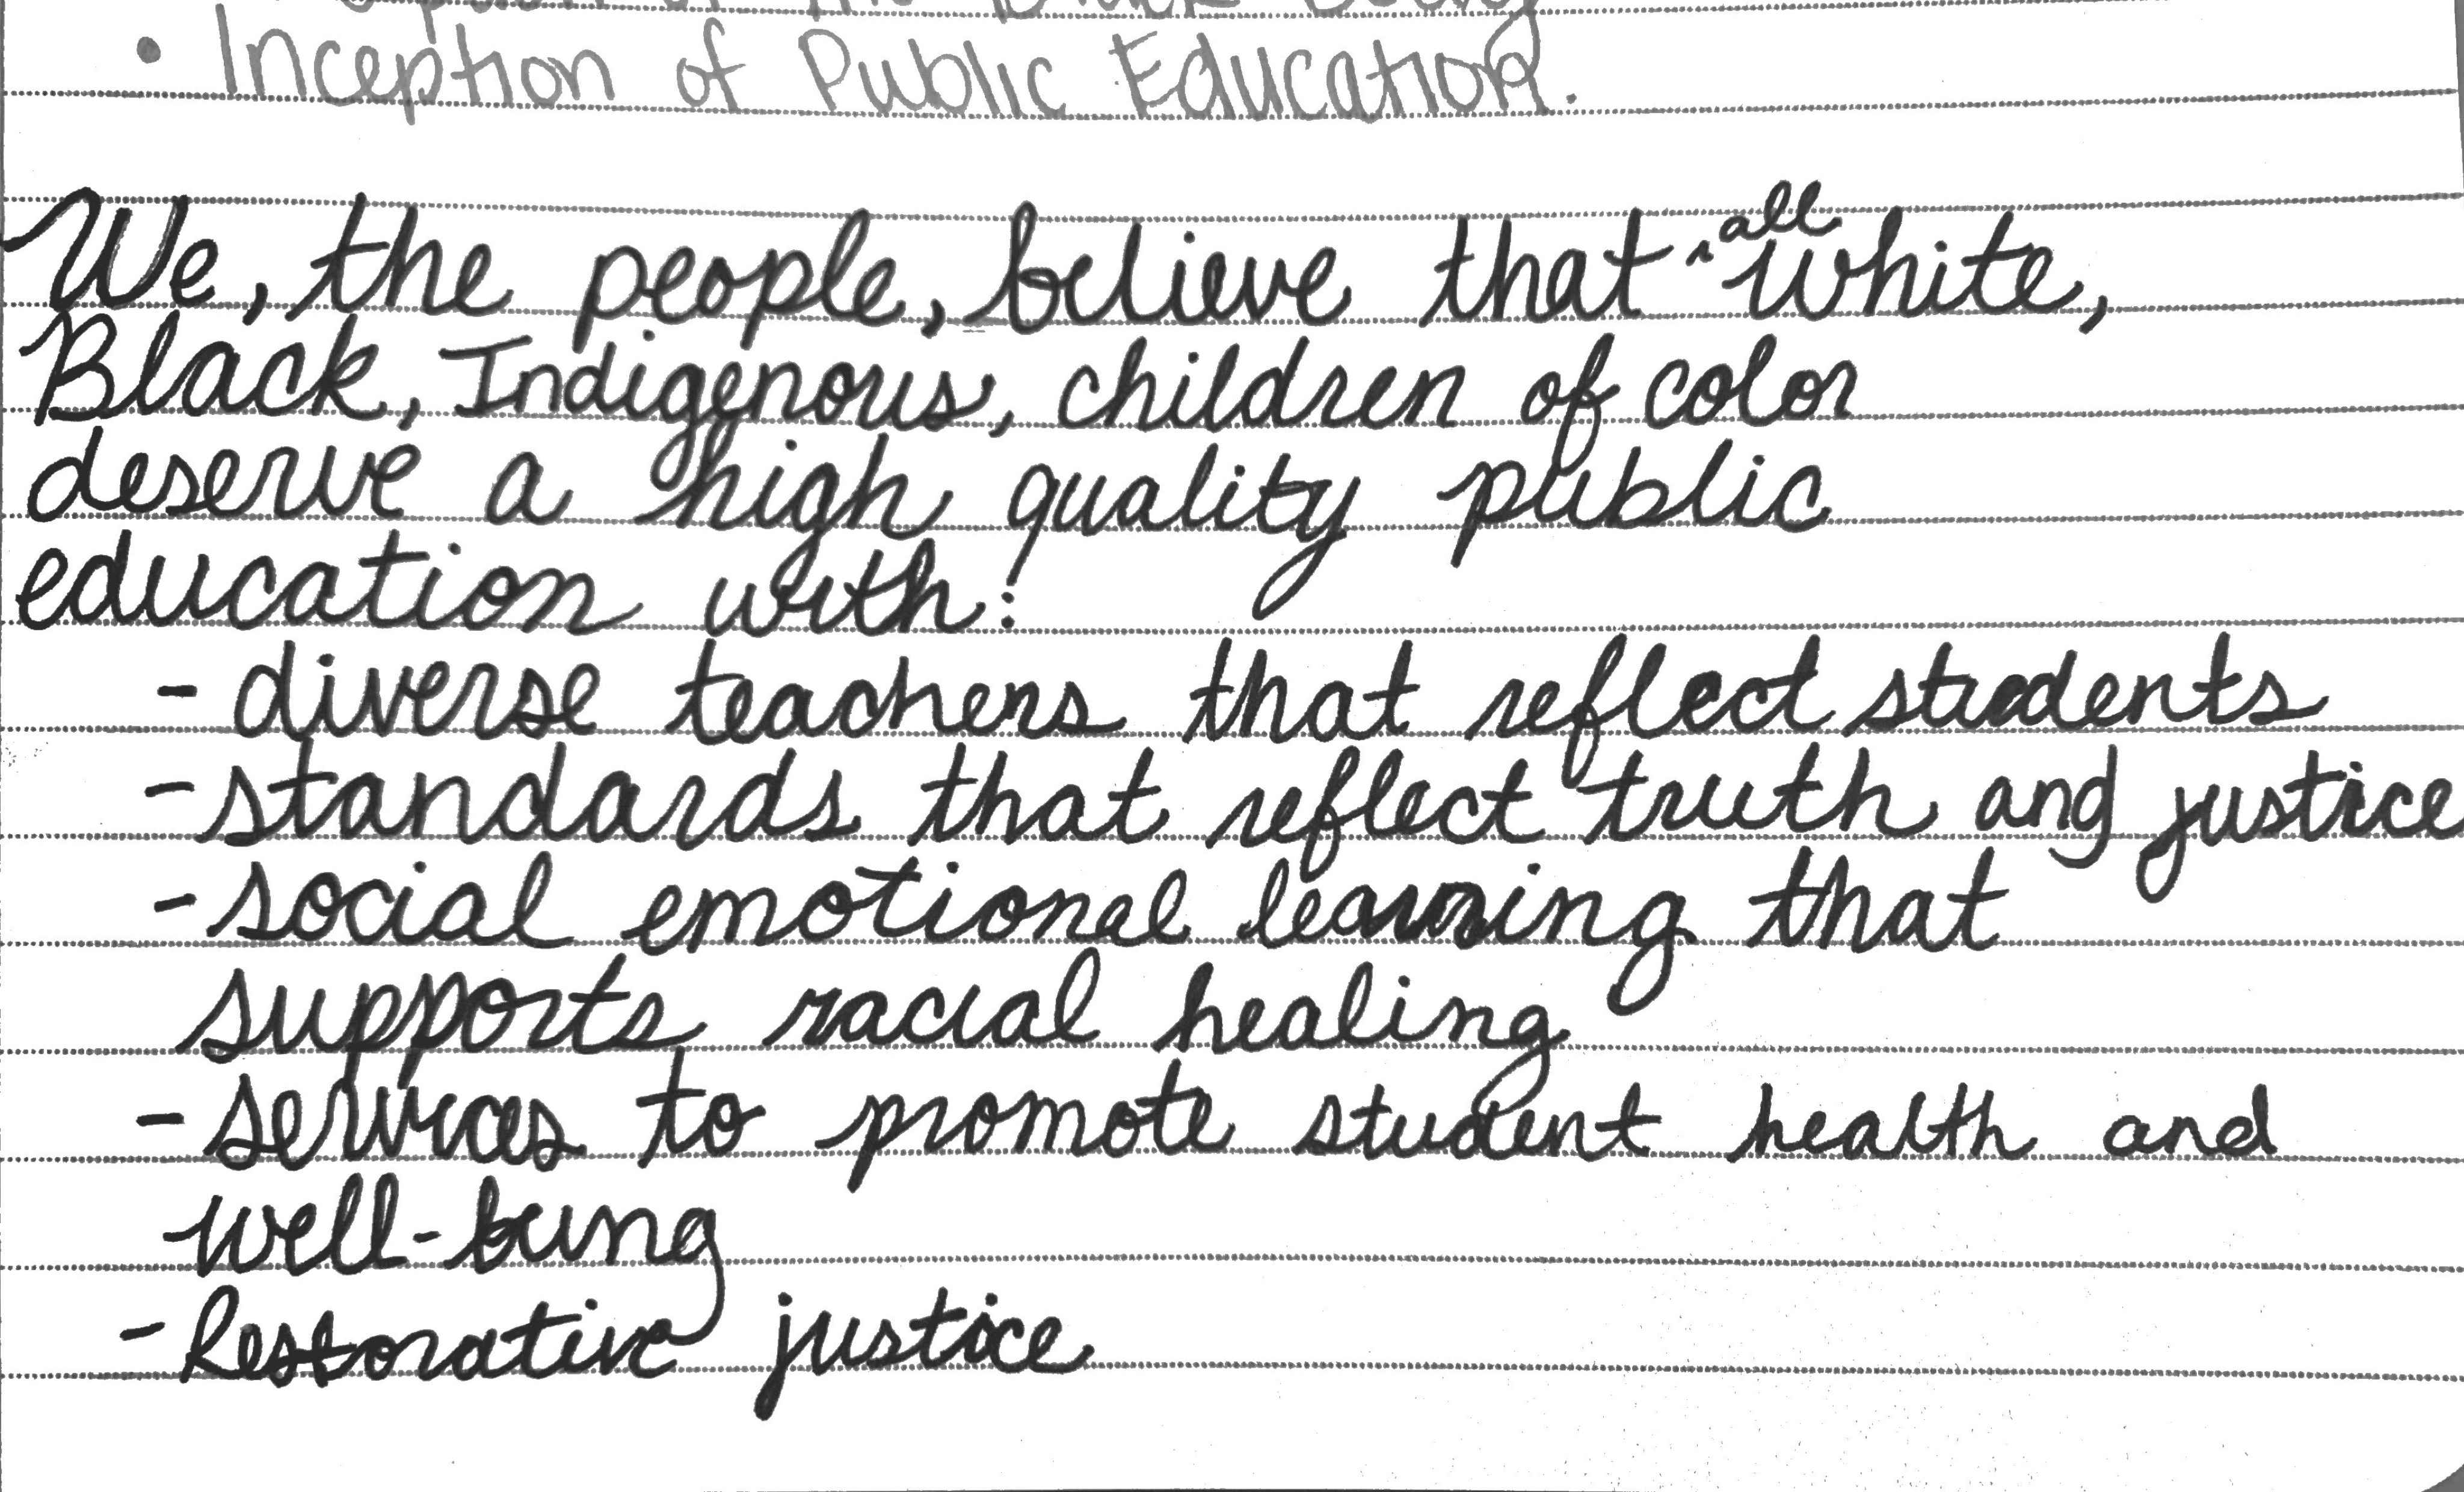 of the Black Body
• Inception of Public Education.
We, the people, believe that ^all White,
Black, Indigenous, children of color
deserve a high quality public
education with:
- diverse teachers that reflect students
- standards that reflect truth and justice
- social emotional learning that
supports racial healing
- services to promote student health and
well-being
- Restorative justice